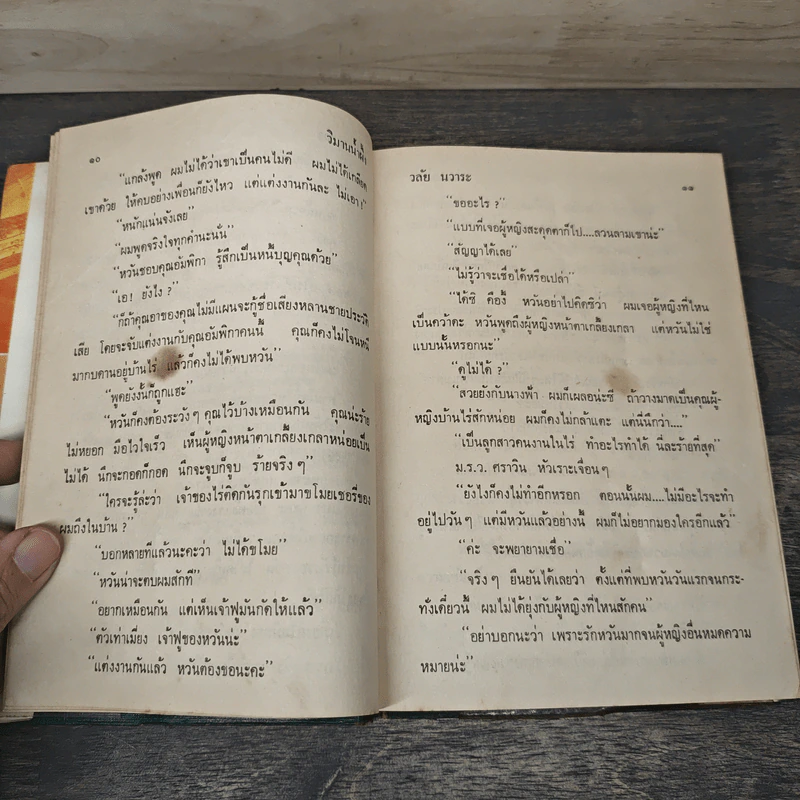 ๑๐
วิมานน้ำผึ้ง
“แกล้งพูด ผมไม่ได้ว่าเขาเป็นคนไม่ดี ผมไม่ได้เกลียด
เขาด้วย ให้คบอย่างเพื่อนก็ยังไหว แต่แต่งงานกันละ ไม่เอา!”
“หนักแน่นจังเลย”
“ผมพูดจริงใจทุกคำนะนั่น”
“หวันชอบคุณอัมพิกา รู้สึกเป็นหนี้บุญคุณด้วย”
“เอ! ยังไง ?”
“ก็ถ้าคุณอาของคุณไม่มีแผนจะกู้ชื่อเสียงหลานชายประวัติ
เสีย โดยจะจับแต่งงานกับคุณอัมพิกาคนนี้ คุณก็คงไม่โจนหนี
มากบดานอยู่บ้านไร่ แล้วก็คงไม่ได้พบหวัน”
“พูดยังงั้นก็ถูกแฮะ”
“หวันก็คงต้องระวังๆ คุณไว้บ้างเหมือนกัน คุณน่ะร้าย
ไม่หยอก มือไวใจเร็ว เห็นผู้หญิงหน้าตาเกลี้ยงเกลาหน่อยเป็น
ไม่ได้ นึกจะกอดก็กอด นึกจะจูบก็จูบ ร้ายจริงๆ”
“ใครจะรู้ล่ะว่า เจ้าของไร่ติดกันรุกเข้ามาขโมยเชอรี่ของ
ผมถึงในบ้าน ?”
“บอกหลายทีแล้วนะคะว่า ไม่ได้ขโมย”
“หวันน่าจะตบผมสักที”
“อยากเหมือนกัน แต่เห็นเจ้าฟูมันกัดให้แล้ว”
“ตัวเท่าเมี่ยง เจ้าฟูของหวันน่ะ”
“แต่งงานกันแล้ว หวันต้องขอนะคะ”
วลัย นวาระ
๑๑
“ขออะไร ?”
“แบบที่เจอผู้หญิงสะดุดตาก็ไป....ลวนลามเขาน่ะ”
“สัญญาได้เลย”
“ไม่รู้ว่าจะเชื่อได้หรือเปล่า”
“ได้ซิ คืองี้ หวันอย่าไปคิดซิว่า ผมเจอผู้หญิงที่ไหน
เป็นคว้าคะ หวันพูดถึงผู้หญิงหน้าตาเกลี้ยงเกลา แต่หวันไม่ใช่
แบบนั้นหรอกนะ”
“ดูไม่ได้ ?”
“สวยยังกับนางฟ้า ผมก็เผลอน่ะซี ถ้าวางมาดเป็นคุณผู้-
หญิงบ้านไร่สักหน่อย ผมก็คงไม่กล้าแตะ แต่นี่นึกว่า....”
“เป็นลูกสาวคนงานในไร่ ทำอะไรทำได้ นี่ละร้ายที่สุด”
ม.ร.ว. ศราวิน หัวเราะเจื่อนๆ
“ยังไงก็คงไม่ทำอีกหรอก ตอนนั้นผม....ไม่มีอะไรจะทำ
อยู่ไปวันๆ แต่มีหวันแล้วอย่างนี้ ผมก็ไม่อยากมองใครอีกแล้ว”
“ค่ะ จะพยายามเชื่อ”
“จริงๆ ยืนยันได้เลยว่า ตั้งแต่ที่พบหวันวันแรกจนกระ-
ทั่งเดี๋ยวนี้ ผมไม่ได้ยุ่งกับผู้หญิงที่ไหนสักคน”
“อย่าบอกนะว่า เพราะรักหวันมากจนผู้หญิงอื่นหมดความ
หมายน่ะ”